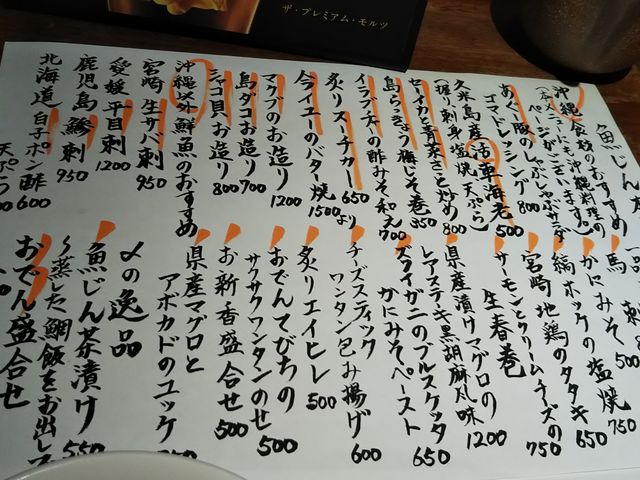 ザ・プレミアム・モルツ
魚じん
沖縄食材のおすすめ
(メニューにも沖縄料理の
ページがございます)
あぐー豚のしゃぶしゃぶサラダ
ゴマドレッシング 800
久米島産活車海老 500
(握り刺身塩焼天ぷら)
セーイカと青菜さっと炒め 800
島らっきょう梅じそ巻 350
イラブチーの酢みそ和え 700
炙りスーチカー 650
今ライユーのバター焼 1500より
マクブのお造り 1200
島ダコお造り 700
シャコ貝お造り 800
沖縄以外鮮魚のおすすめ
宮崎 生サバ刺 950
愛媛 平目刺 1200
鹿児島 鯵刺 950
北海道 白子ポン酢 600
天ぷら
一品
馬刺
かにみそ 500
縞ホッケの塩焼 750
宮崎地鶏のタタキ 650
サーモンとクリームチーズの
生春巻 750
県産漬けマグロの
レアステーキ黒胡麻風味 1200
ズワイガニのブルスケッタ
かにみそペースト 650
チーズスティック
ワンタン包み揚げ 600
炙りエイヒレ 500
おでんてびちの
サクサクワンタンのせ 500
お新香盛合せ 500
県産マグロと
アボカドのユッケ
〆の逸品
魚じん茶漬け 550
〜蒸した鯛飯をお出し
おでん盛合せ